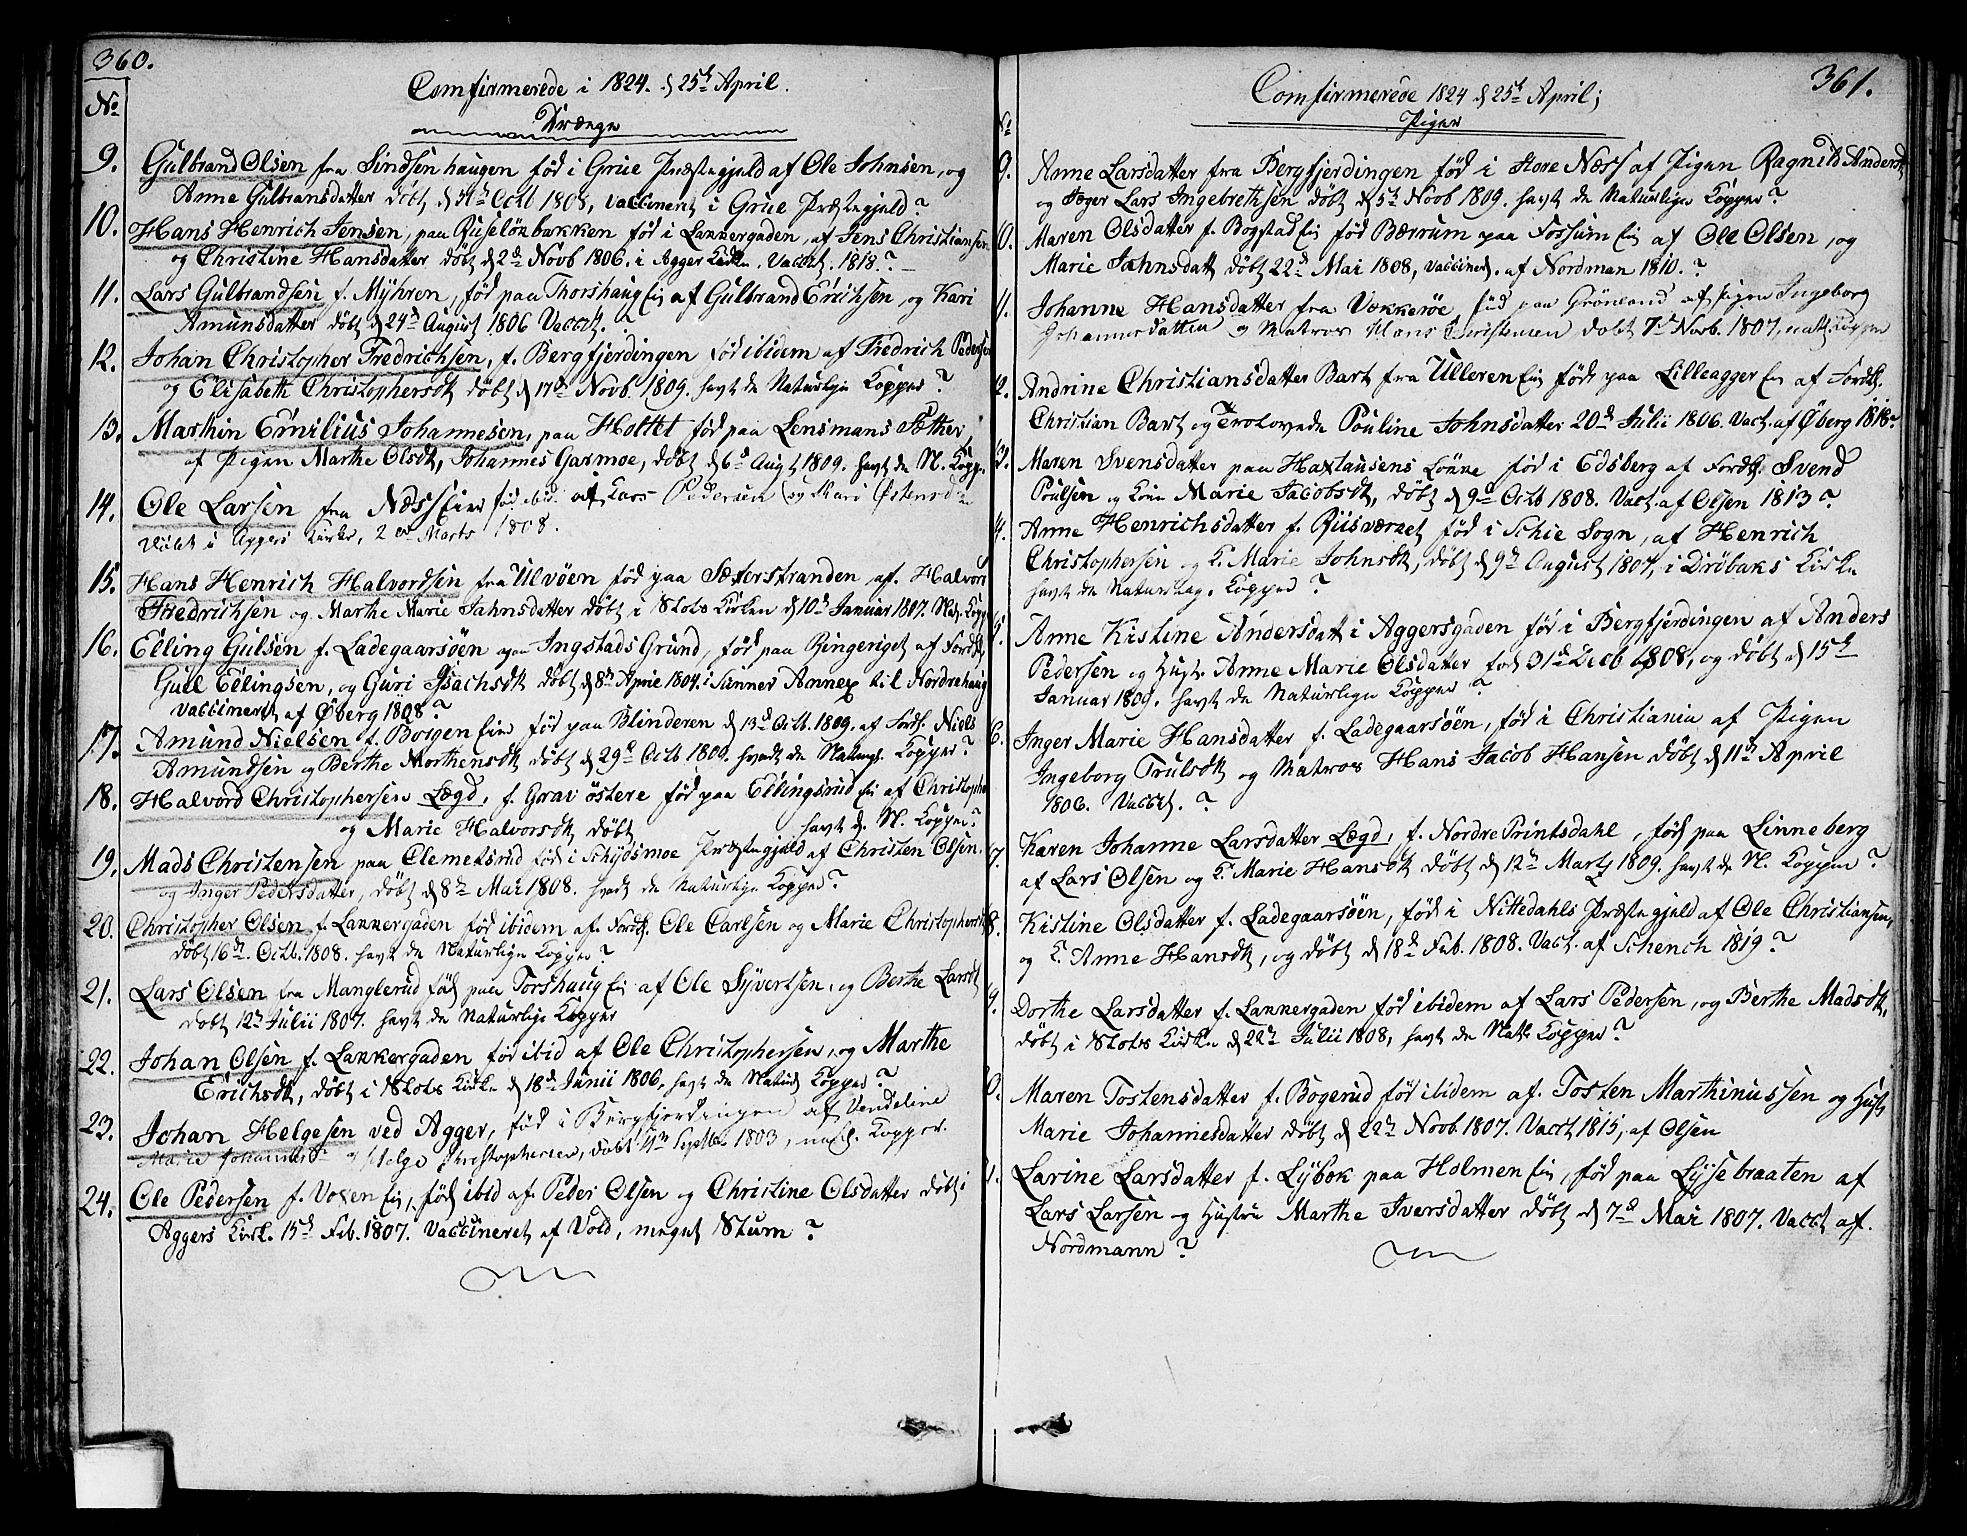 360.
Comfirmerede i 1824. d 25t April.
No
Drænge
9. Gulbrand Olsen fra Sindsenhaugen fød i Grue Præstegjeld af Ole Johnsen, og
Anne Gulbransdatter døbt d Octb 1808, Vaccineret i Grue Præstegjeld ?
10. Hans Henrich Jensen, paa Ruselønbakken fød i Lakkergaden, af Jens Christiansen
og Christine Hansdatter døbt d 2d Novb 1806. i Agger Kirke. Vaccrt. 1818. ?
11. Lars Gulbrandsen f. Myhren, fød paa Thorshaug Ei af Gulbrand Erichsen og Kari
Amunsdatter døbt d 24d August 1806 Vaccrt. ?
12. Johan Christopher Fredrichsen, f. Bergfjerdingen fød ibidem af Fredrich Pedersen
og Elisabeth Christophersdt døbt d 17d Novb. 1809. havt de Naturlige Kopper ?
13. Marthin Emilius Johannesen, paa Hottet fød paa Lensmans Sæther
af Pigen Marthe Olsdt, Johannes Garmoe, døbt d 6d Augt 1809. havt de N. Kopp.
14. Ole Larsen fra Næss Eie fød ibid. af Lars Pedersen og Kari Østensd
døbt i Aggers Kirke, 2en Marts 1808.
15. Hans Henrich Halvordsen fra Ulvøen fød paa Sæterstranden af. Halvor
Fredrichsen og Marthe Marie Jahnsdatter døbt i Slots Kirken d 10d Januar 1807. Nat. Kopp
16. Elling Gulsen f. Ladegaarsøen Ingstads Grund, fød paa Ringeriget af Fordt.
Gull Ellingsen, og Guri Isachsdt døbt d 8d April 1804. i Sunner Annex til Nordrehaug
Vaccineret af Øberg 1808 ?
17. Amund Nielsen f. Borgen Eie fød paa Blinderen d 13d Oct. 1809. af Fordt. Niels
Amundsen og Berthe Morthensdt døbt d 29d Octb 1809. havdt de Naturl. Kopper ?
18. Halvord Christophersen Lægd, f. Grav østere fød paa Ellingsrud Ei af Christopher
og Marie Halvorsdt døbt havt de N. Kopper ?
19. Mads Christensen paa Clemetsrud fød i Schydsmoe Præstegjeld af Christen Olsen
og Inger Pedersdatter, døbt d 8d Mai 1808. havdt de Naturlige Kopper ?
20. Christopher Olsen f. Lakkergaden fød ibidem af. Fordt. Ole Carlsen og Marie Christophersdt
døbt 16d. Octb. 1808. havt de Naturlige Kopper ?
21. Lars Olsen fra Manglerud fød paa Torshaug Ei af Ole Syvertsen, og Berthe Larsdt
døbt 12d Julii 1807. havt de Naturlige Kopper
22. Johan Olsen f. Lakkergaden fød ibid af Ole Christophersen, og Marthe
Erichsdt, døbt i Slots Kirke d 18d Junii 1806, havt de Naturl Kopper ?
23. Johan Helgesen ved Agger, fød i Bergfjerdingen af Vendeline
Marie Johannesd og Helge Christophersen, døbt Septb. 1803, natl. Kopper.
24. Ole Pedersen f. Voxen Ei, fød ibid af. Peder Olsen og Christine Olsdatter døbt i
Aggers Kirk. 15d Feb. 1807. Vaccineret af Vold, meget Stum ?
361.
Comfirmerede 1824 d 25t April;
No
Piger
9. Anne Larsdatter fra Bergfjerdingen fød i Store Næss af Pigen Ragnild Andersdt
og Jæger Lars Ingebrethsen døbt d 5t Novb 1809. havt de Naturlige Kopper ?
0. Maren Olsdatter f. Bogstad Ei fød Bærrum paa Fossum Ei af Ole Olsen, og
Marie Jahnsdatt døbt 22d Mai 1808, Vaccined. af Nordman 1810. ?
11. Johanne Hansdatter fra Vækkerøe fød paa Grønland af Pigen Ingeborg
Johannesdatter og Matros Hans Christensen døbt 7d Novb. 1807, natl. Kopper
2. Andrine Christiansdatter Bart fra Ulleren Ei født paa Lilleagger Ei af Fordt.
Christian Bart og Trolovede Pouline Johnsdatter 20d Julii 1806. Vact. af Øberg 1818 ?
3. Maren Svensdatter paa Haxtausens Løkke fød i Edsberg af Fordt. Svend
Poulsen og Kone Marie Jacobsdt, døbt d 9d Octb 1808. Vact. af Olsen 1813 ?
4. Anne Henrichsdatter f. Riisværket fød i Schie Sogn, af Henrich
Christophersen og K. Marie Johnsdt, døbt d 9d August 1807, i Drøbaks Kirke
havt de Naturlige. Kopper ?
5. Anne Kistine Andersdatt i Aggersgaden fød i Bergfjerdingen af Anders
Pedersen og Hustr. Anne Marie Olsdatter fød 31d Decb 1808, og døbt d 15d
Januar 1809. havt de Naturlige Kopper ?
6. Inger Marie Hansdatter f. Ladegaarsøen, fød i Christiania af Pigen
Ingeborg Trulsdt og Matros Hans Jacob Hansen døbt d 11t April
1806. Vaccrt. ?
7. Karen Johanne Larsdatter Lægd, f. Nordre Printsdahl, fød paa Linneberg
af Lars Olsen og K. Marie Hansdt døbt d 12d Marts 1809. havt de N. Kopper ?
8. Kistine Olsdatter f. Ladegaarsøen, fød i Nittedahls Præstegjeld af Ole Christiansen,
og K. Anne Hansdt, og døbt d 18d Feb. 1808. Vact. af Schench 1819 ?
9. Dorthe Larsdatter f. Lakkergaden fød ibidem af Lars Pedersen, og Berthe Madsdt,
døbt i Slots Kirke d 22d Julii 1808, havt de Natl. Kopper ?
0. Maren Tostensdatter f. Bogerud fød ibidem af. Tosten Marthinussen og Hust
Marie Johannesdatter døbt d 22d Novb. 1807. Vacrt 1815, af Olsen
1. Larine Larsdatter f. Lybek paa Holmen Ei, fød paa Lysebraaten af
Lars Larsen og Hustru Marthe Iversdatter døbt d 7d Mai 1807. Vacct af.
Nordmann ?